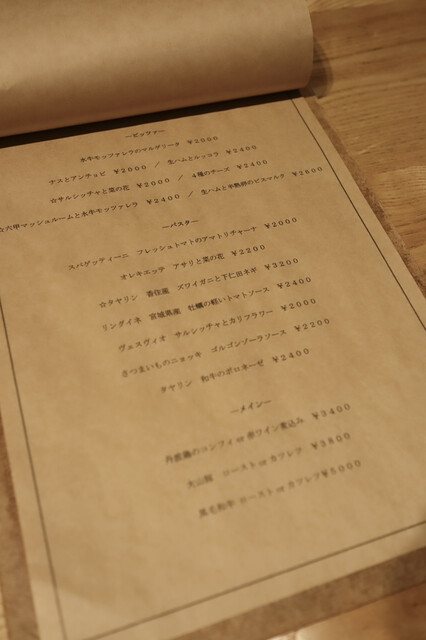 ―ピッツァ―
水牛モッツァレラのマルゲリータ ￥2000
ナスとアンチョビ ￥2000 / 生ハムとルッコラ ￥2400
☆サルシッチャと菜の花 ￥2000 / 4種のチーズ ￥2400
☆六甲マッシュルームと水牛モッツァレラ ￥2400 / 生ハムと半熟卵のビスマルク ￥2600
―パスタ―
スパゲッティーニ フレッシュトマトのアマトリチャーナ ￥2000
オレキエッテ アサリと菜の花 ￥2200
☆タヤリン 香住産 ズワイガニと下仁田ネギ ￥3200
リングイネ 宮城県産 牡蠣の軽いトマトソース ￥2400
ヴェスヴィオ サルシッチャとカリフラワー ￥2000
さつまいものニョッキ ゴルゴンゾーラソース ￥2200
タヤリン 和牛のボロネーゼ ￥2400
―メイン―
丹波鶏のコンフィ or 赤ワイン煮込み ￥3400
犬山猪 ロースト or カツレツ ￥3800
黒毛和牛 ロースト or カツレツ ￥5000